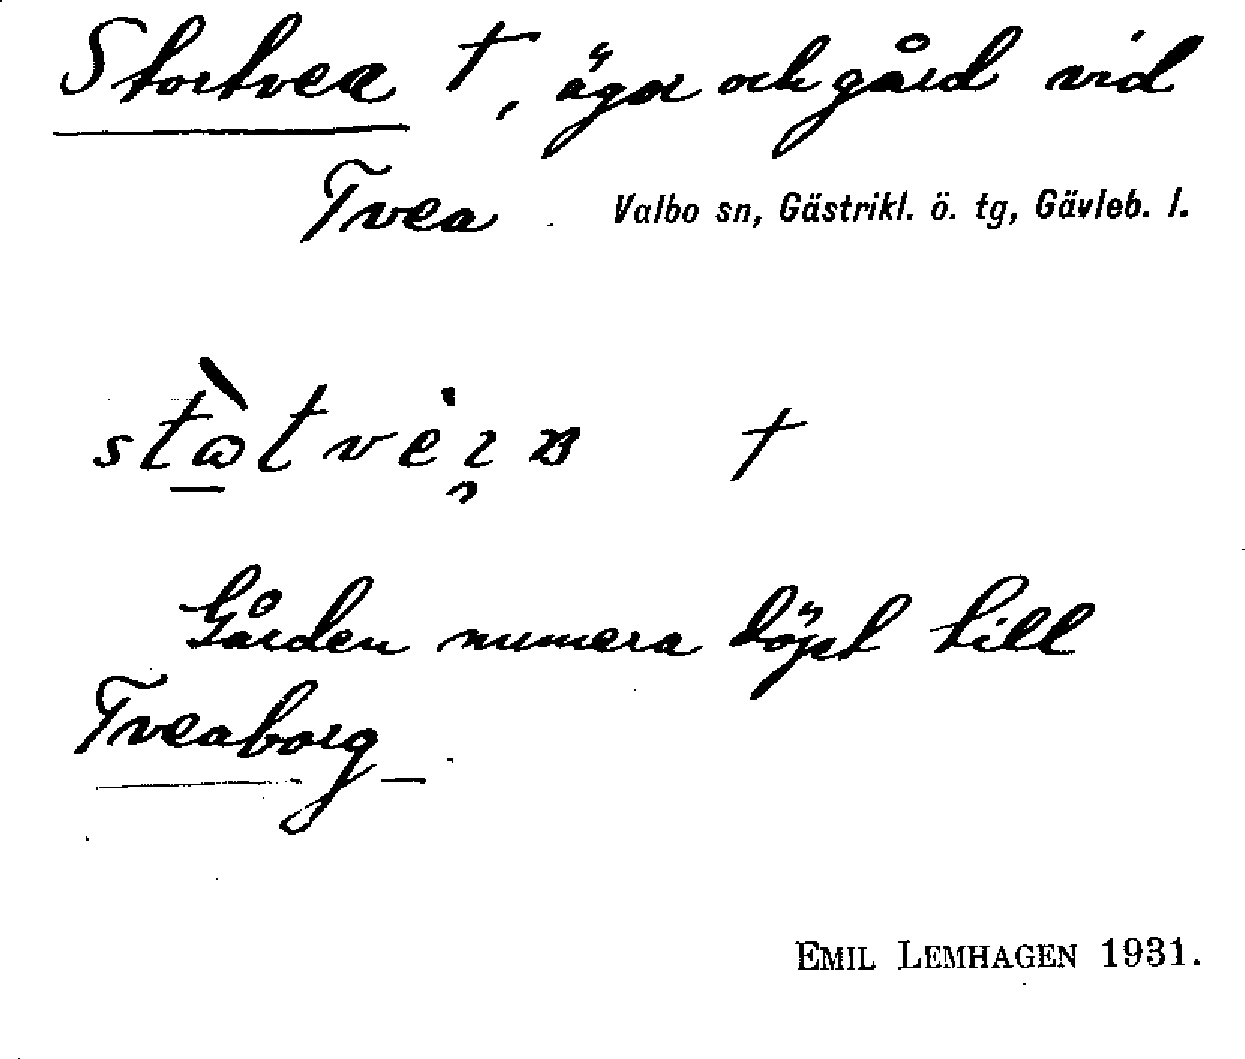 Stortvea †, ägor och gård vid
Tvea. Valbo sn, Gästrikl. ö. tg, Gävleb. l.
†
Gården numera döpt till
Tveaborg
EMIL LEMHAGEN 1931.